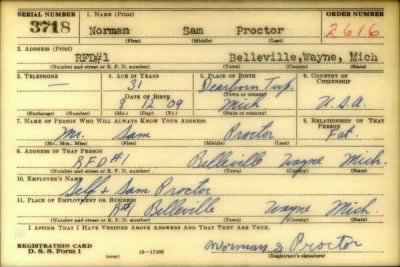 SERIAL NUMBER 1. NAME (Print) ORDER NUMBER
3718 Norman Sam Proctor 2616
(First) (Middle) (Last)
2. ADDRESS (Print)
RFD#1 Belleville, Wayne, Mich
(Number and street or R. F. D. number) (Town) (County) (State)
3. TELEPHONE 4. AGE IN YEARS 5. PLACE OF BIRTH 6. COUNTRY OF CITIZENSHIP
— 31 Dearborn Twp.
DATE OF BIRTH (Town or county)
8 12 09 Mich U.S.A.
(Exchange) (Number) (Mo.) (Day) (Yr.) (State or country)
7. NAME OF PERSON WHO WILL ALWAYS KNOW YOUR ADDRESS 8. RELATIONSHIP OF THAT PERSON
Mr. Sam Proctor Fat.
(Mr., Mrs., Miss) (First) (Middle) (Last)
9. ADDRESS OF THAT PERSON
RFD #1 Belleville Wayne Mich.
(Number and street or R. F. D. number) (Town) (County) (State)
10. EMPLOYER'S NAME
Self & Sam Proctor
11. PLACE OF EMPLOYMENT OR BUSINESS
R#1 Belleville Wayne Mich.
(Number and street or R. F. D. number) (Town) (County) (State)
I AFFIRM THAT I HAVE VERIFIED ABOVE ANSWERS AND THAT THEY ARE TRUE.
REGISTRATION CARD
D. S. S. Form 1 16—17105 Norman S Proctor
(Registrant's signature)